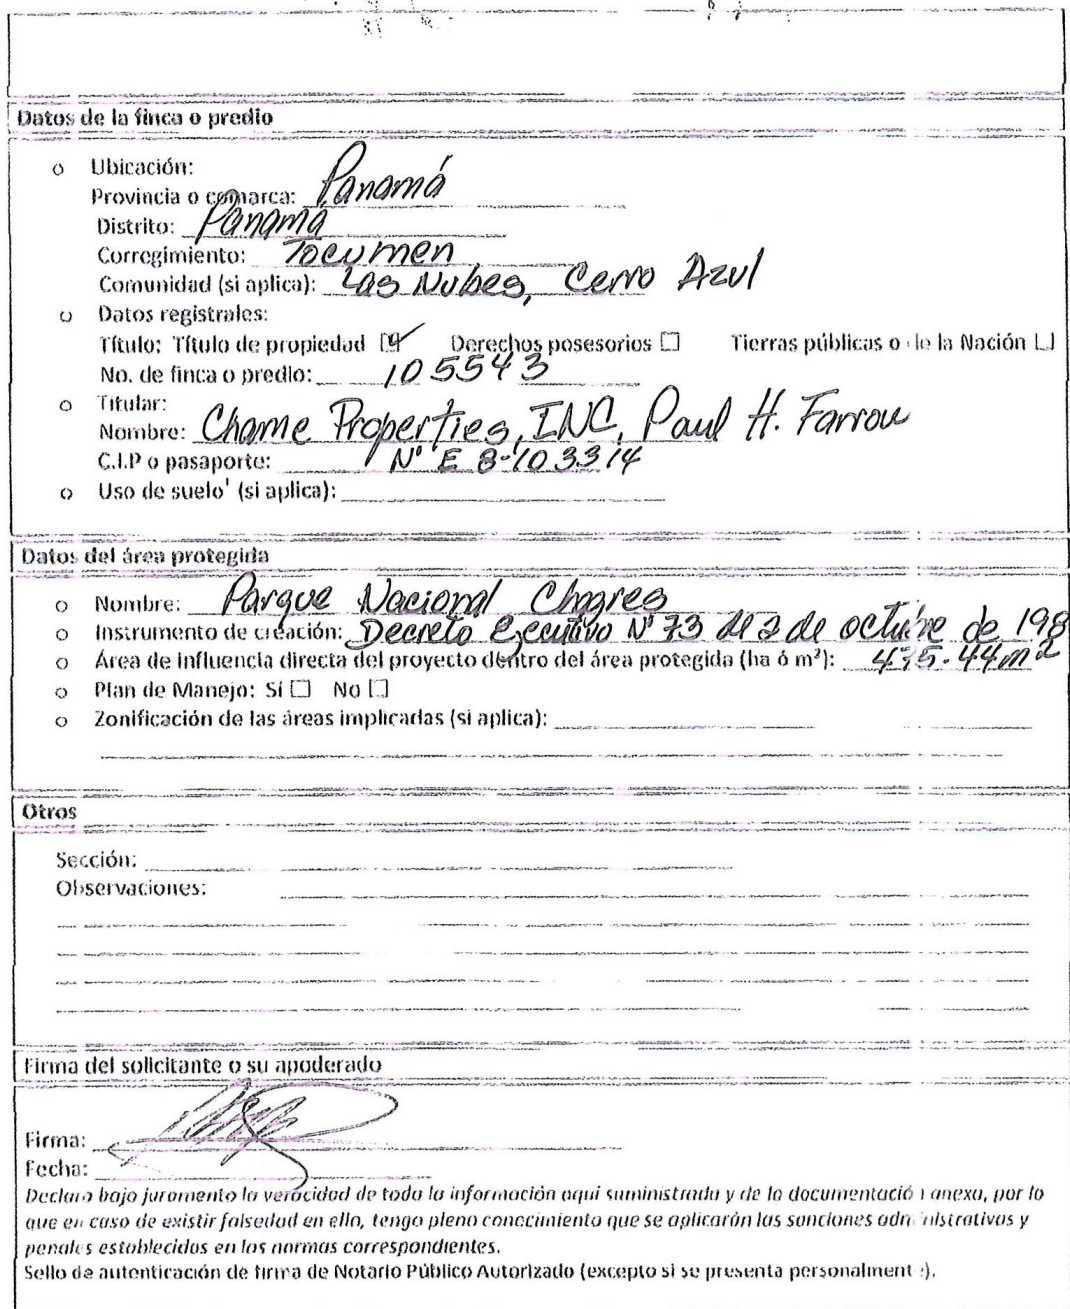 Datos de la finca o predio
o Ubicación:
Provincia o comarca: Panamá
Distrito: Panamá
Corregimiento: Tocumen
Comunidad (si aplica): Las Nubes, Cerro Azul
o Datos registrales:
Título: Título de propiedad ☑ Derechos posesorios ☐ Tierras públicas o de la Nación ☐
No. de finca o predio: 105543
o Titular:
Nombre: Chame Properties, INC, Paul H. Farrow
C.I.P o pasaporte: N° E 8-103314
o Uso de suelo¹ (si aplica):
Datos del área protegida
o Nombre: Parque Nacional Chagres
o Instrumento de creación: Decreto Ejecutivo N° 73 de 2 de octubre de 198
o Área de influencia directa del proyecto dentro del área protegida (ha ó m²): 475.44 m²
o Plan de Manejo: Sí ☐ No ☐
o Zonificación de las áreas implicadas (si aplica):
Otros
Sección:
Observaciones:
Firma del solicitante o su apoderado
Firma:
Fecha:
Declaro bajo juramento la veracidad de toda la información aquí suministrada y de la documentación anexa, por lo
que en caso de existir falsedad en ella, tengo pleno conocimiento que se aplicarán las sanciones administrativas y
penales establecidos en las normas correspondientes.
Sello de autenticación de firma de Notario Público Autorizado (excepto si se presenta personalmente).